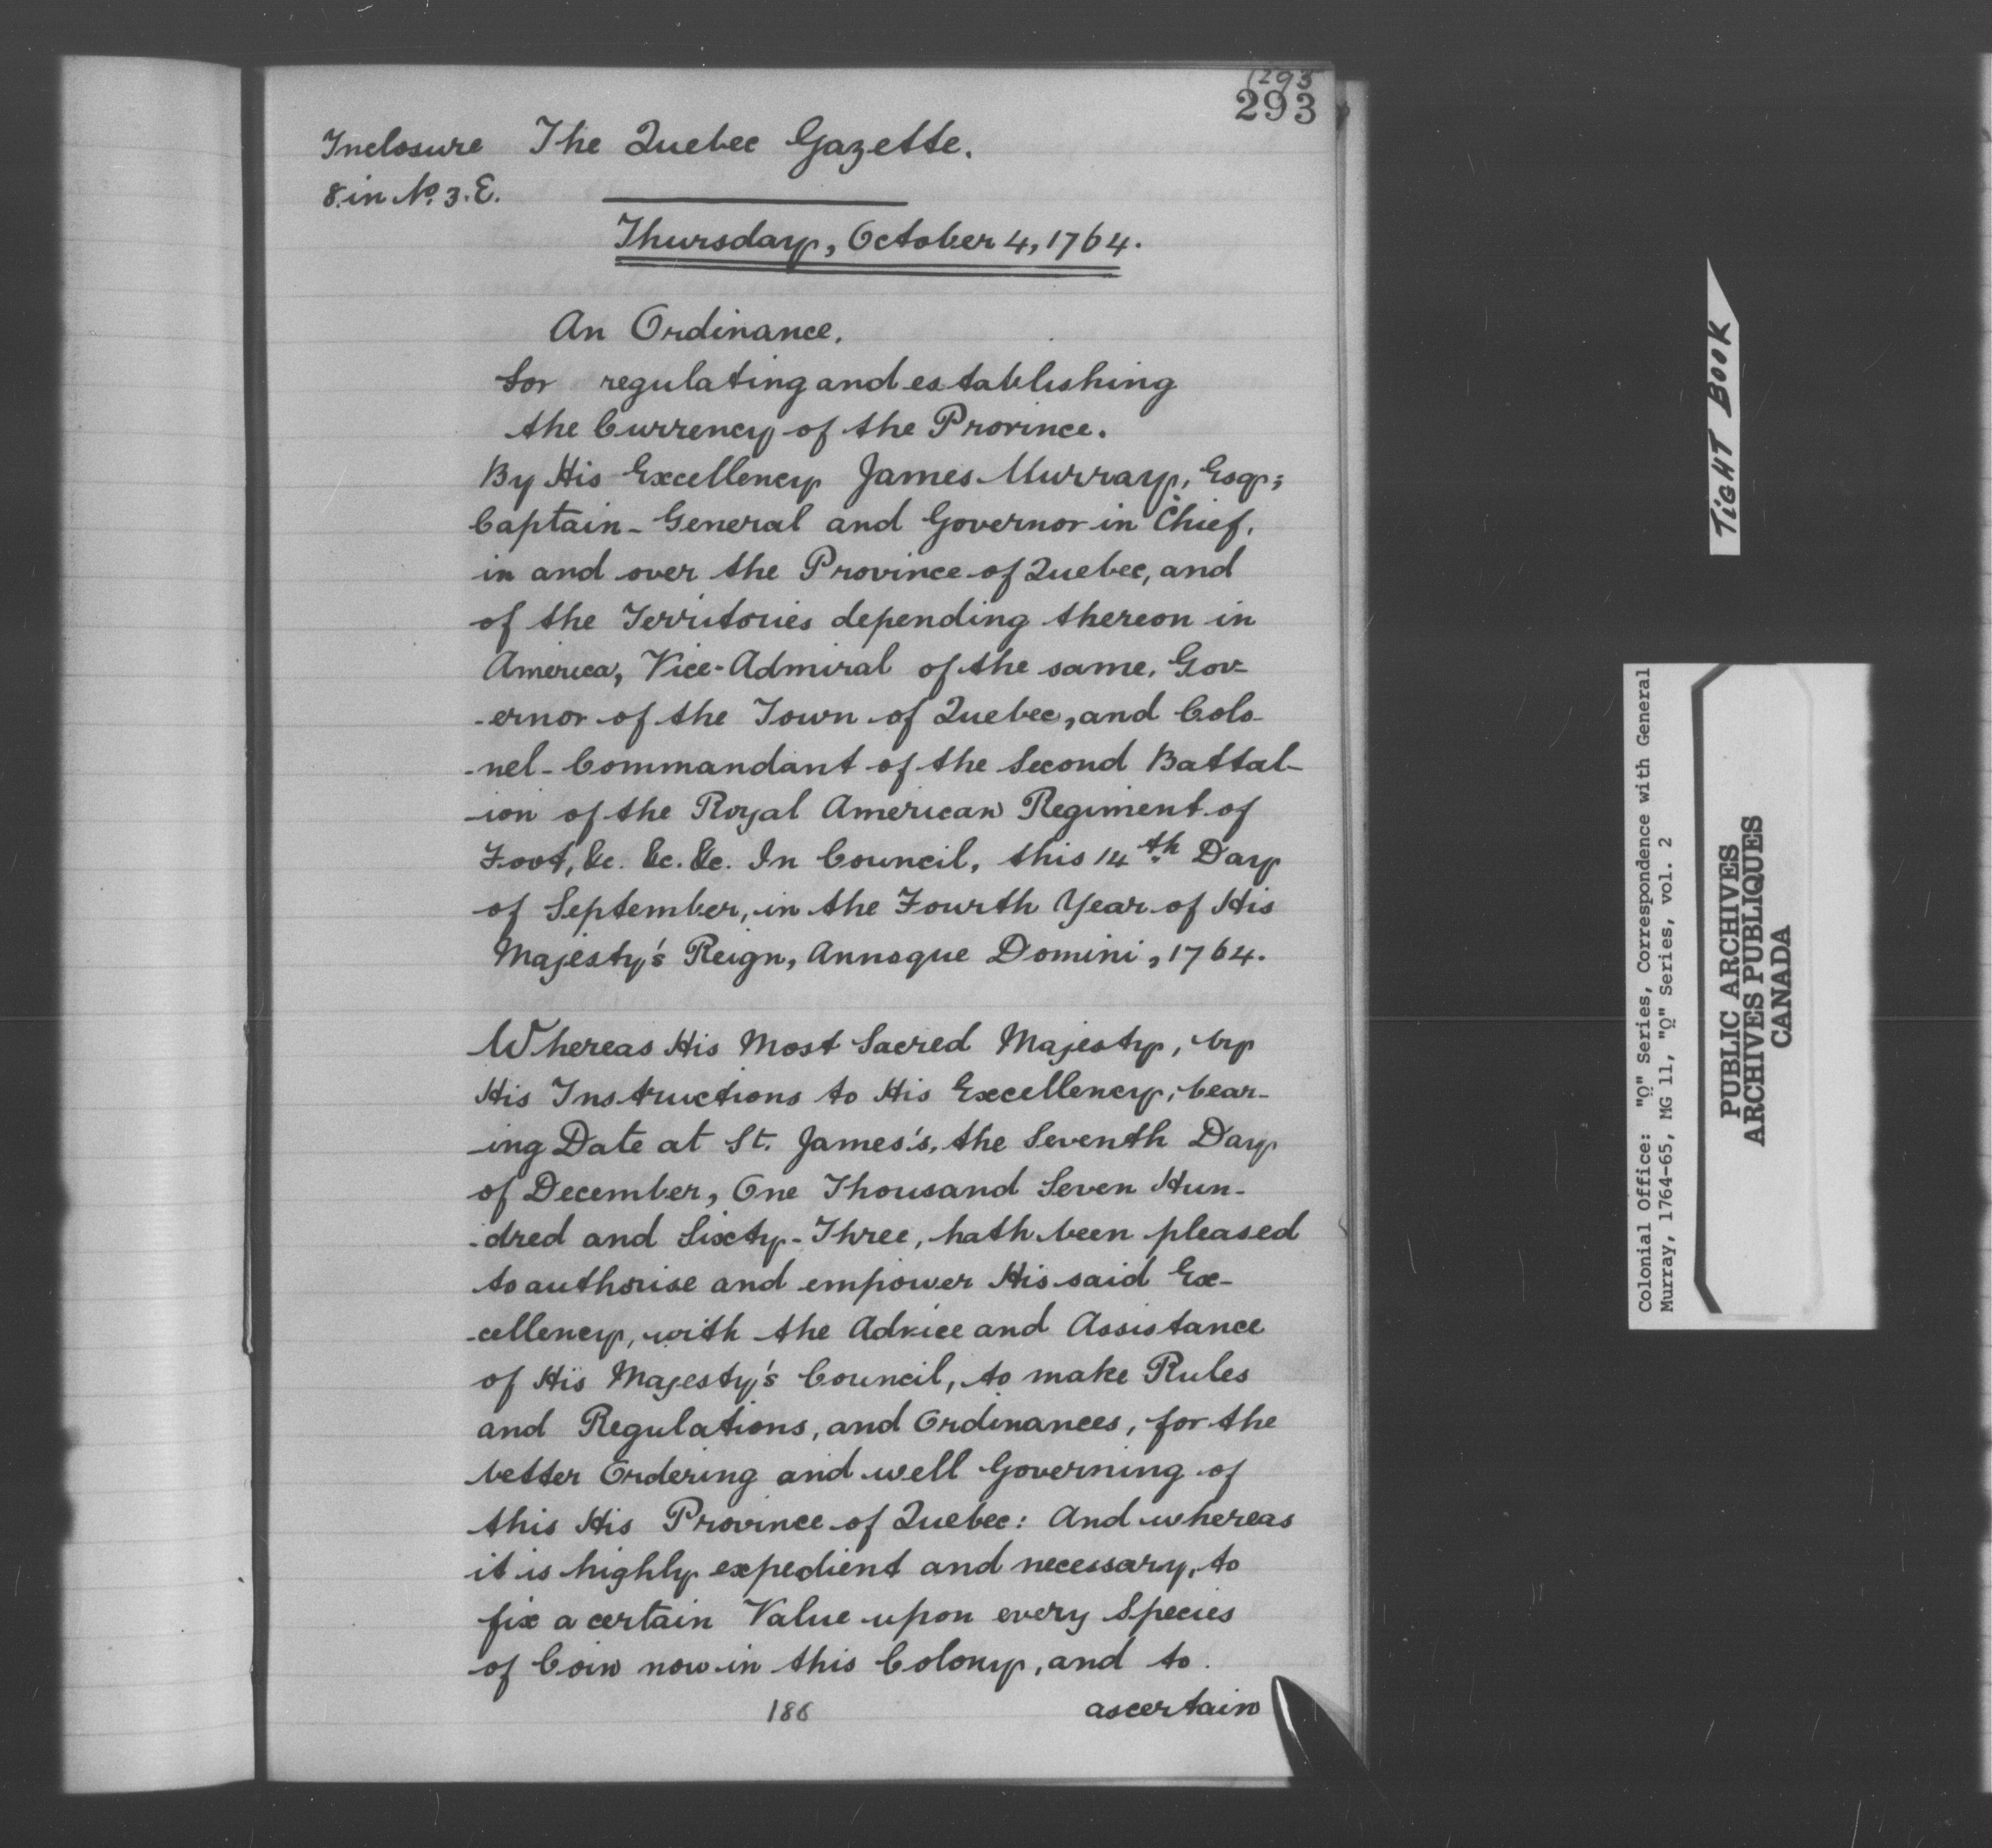 (293
293
Inclosure The Quebec Gazette.
8. in No. 3. E.
Thursday, October 4, 1764.
An Ordinance,
for regulating and establishing
the Currency of the Province.
By His Excellency James Murray, Esq;
Captain-General and Governor in Chief,
in and over the Province of Quebec, and
of the Territories depending thereon in
America, Vice-Admiral of the same, Gov-
-ernor of the Town of Quebec, and Colo-
-nel-Commandant of the Second Battal-
-ion of the Royal American Regiment of
Foot, &c. &c. &c. In Council, this 14th. Day
of September, in the Fourth Year of His
Majesty's Reign, Annoque Domini, 1764.
Whereas His Most Sacred Majesty, by
His Instructions to His Excellency, bear-
-ing Date at St. James's, the Seventh Day
of December, One Thousand Seven Hun-
-dred and Sixty-Three, hath been pleased
to authorise and empower His said Ex-
-cellency, with the Advice and Assistance
of His Majesty's Council, to make Rules
and Regulations, and Ordinances, for the
better Ordering and well Governing of
this His Province of Quebec: And whereas
it is highly expedient and necessary, to
fix a certain Value upon every Species
of Coin now in this Colony, and to
ascertain
186
TiGHT BOOK
Colonial Office: "Q" Series, Correspondence with General
Murray, 1764-65, MG 11, "Q" Series, vol. 2
PUBLIC ARCHIVES
ARCHIVES PUBLIQUES
CANADA